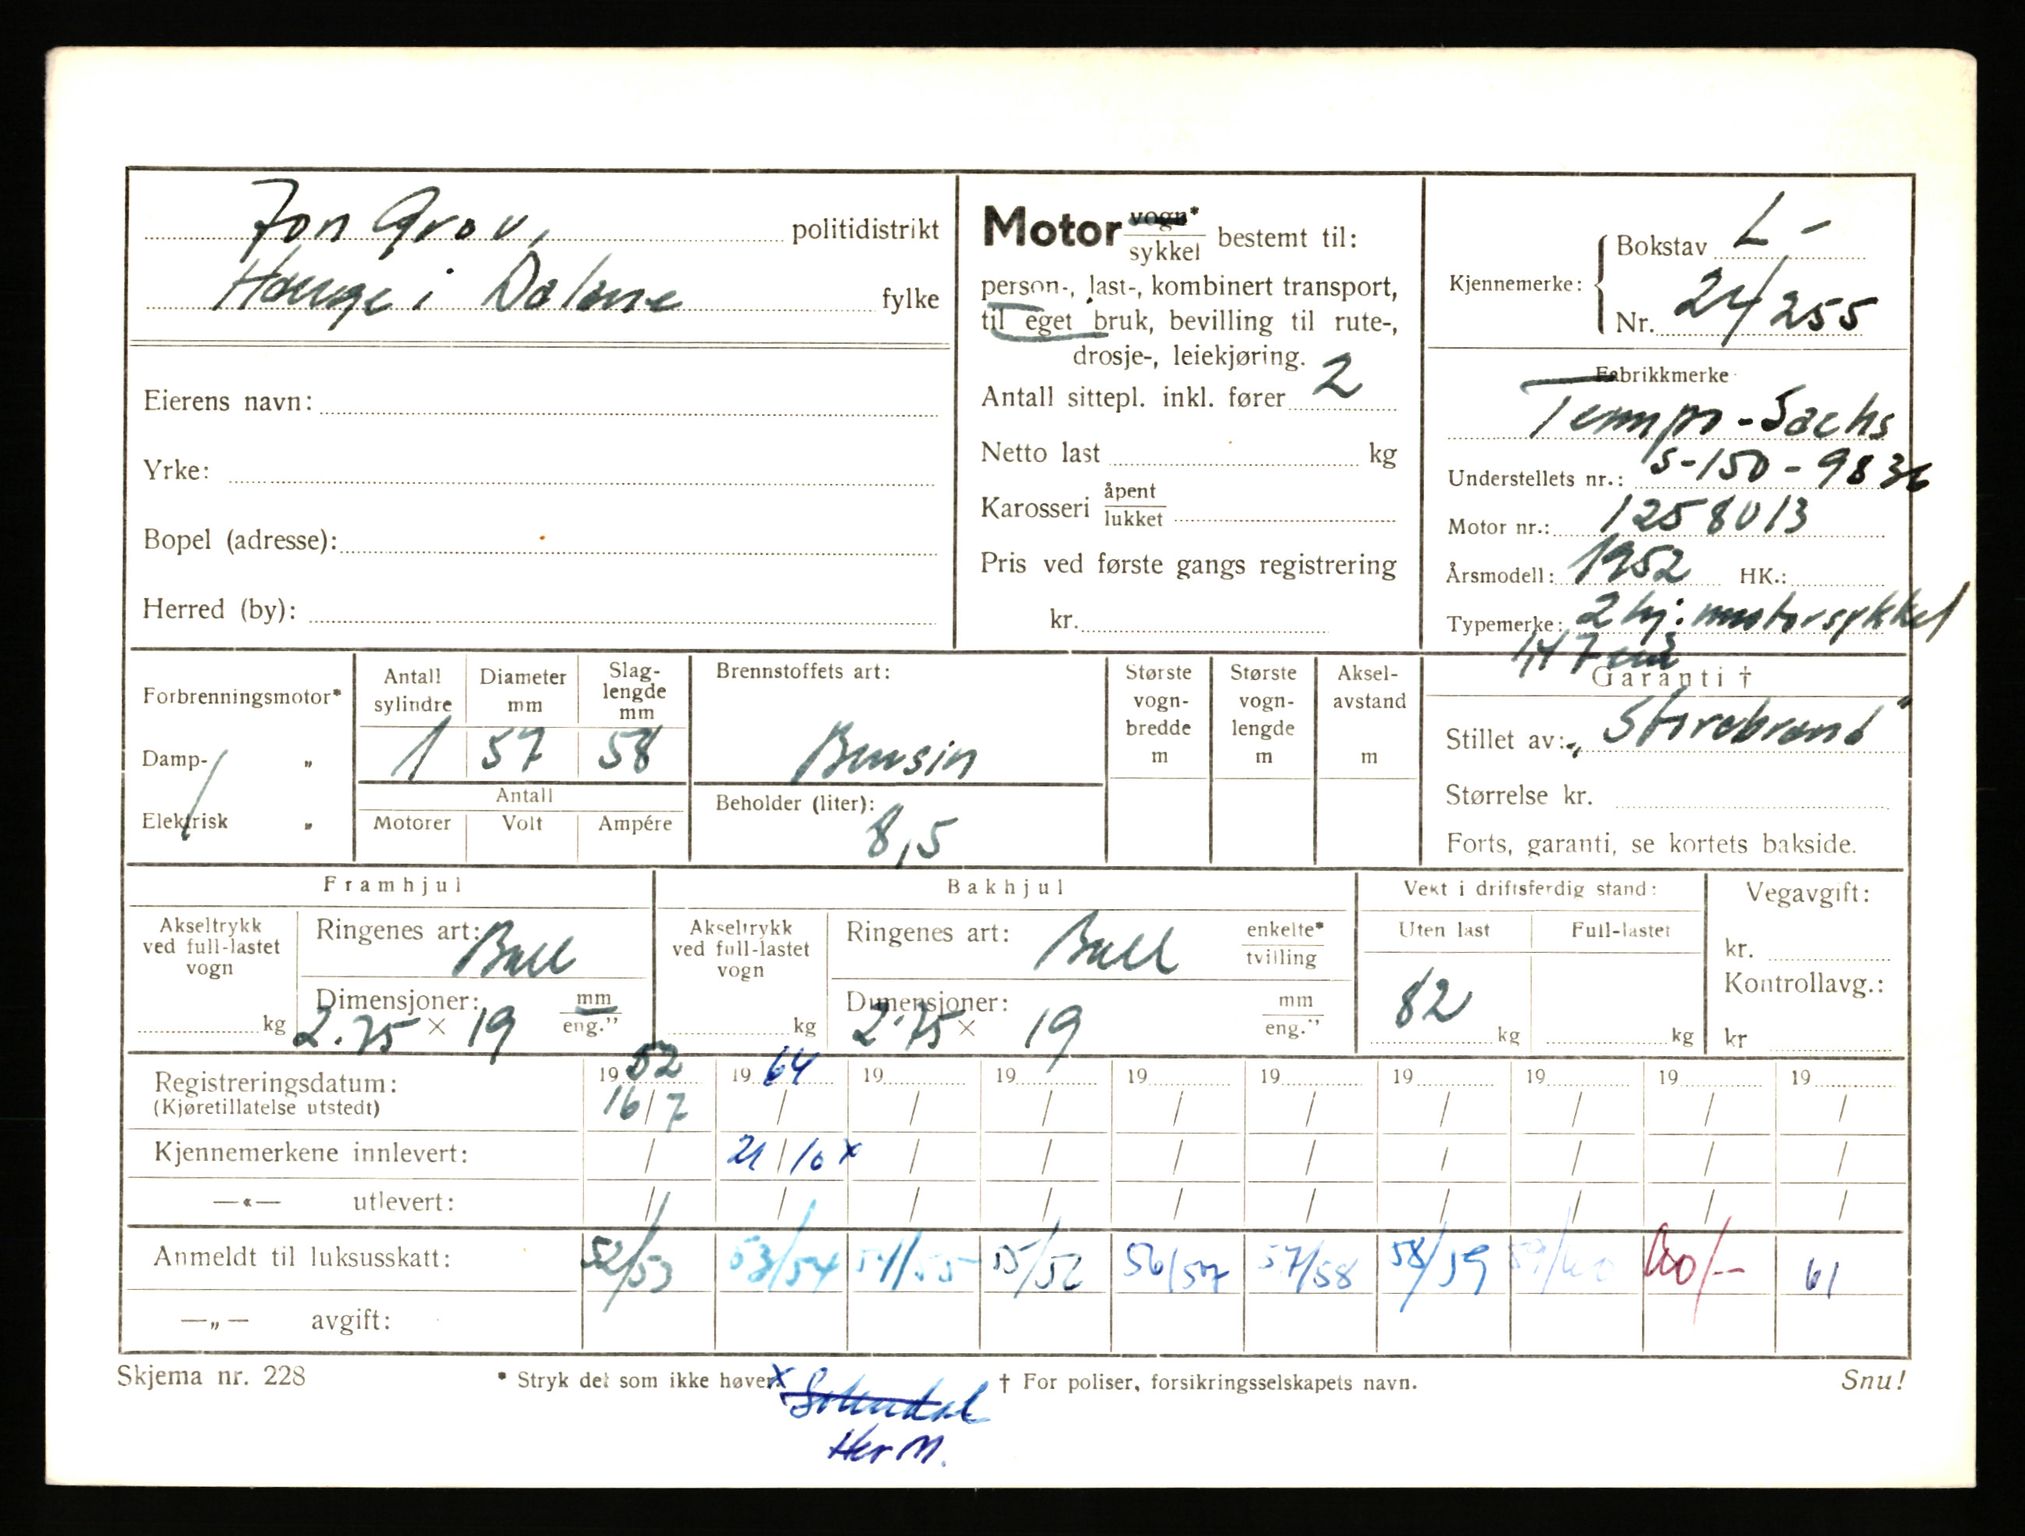 Jon Grov, politidistrikt
Hauge i Dalane fylke
Eierens navn:
Yrke:
Bopel (adresse):
Herred (by):
Motor vogn* sykkel bestemt til:
person-, last-, kombinert transport,
til eget bruk, bevilling til rute-,
drosje-, leiekjøring.
Antall sittepl. inkl. fører 2
Netto last kg
Karosseri åpent lukket
Pris ved første gangs registrering
kr.
Kjennemerke: Bokstav L-
Nr. 24255
Fabrikkmerke
Tempo-Sachs
Understellets nr.: S-150-9836
Motor nr.: 1258013
Årsmodell: 1952 HK.:
Typemerke: 2 hj: motorsykkel
147 cm3
Garanti †
Stillet av: „Storebrand"
Størrelse kr.
Forts, garanti, se kortets bakside.
Forbrenningsmotor*
Damp- „
Elektrisk „
Antall sylindre Diameter mm Slag-lengde mm
1 57 58
Antall
Motorer Volt Ampére
Brennstoffets art:
Bensin
Beholder (liter):
8,5
Største vogn-bredde m
Største vogn-lengde m
Aksel-avstand m
Framhjul
Akseltrykk ved full-lastet vogn kg
Ringenes art: Ball
Dimensjoner: mm eng."
2.75 × 19
Bakhjul
Akseltrykk ved full-lastet vogn kg
Ringenes art: Ball enkelte* tvilling
Dimensjoner: mm eng."
2.75 × 19
Vekt i driftsferdig stand:
Uten last Full-lastet
82 kg kg
Vegavgift:
kr.
Kontrollavg.:
kr
Registreringsdatum: 1952 1964 19 19 19 19 19 19 19 19
(Kjøretillatelse utstedt) 16/7 / / / / / / / / /
Kjennemerkene innlevert: / 21/10 x / / / / / / / /
—«— utlevert: / / / / / / / / / /
Anmeldt til luksusskatt: 52/53 53/54 54/55 55/56 56/57 57/58 58/59 59/60 60/-- 61
—„— avgift:
Skjema nr. 228 * Stryk det som ikke høver. † For poliser, forsikringsselskapets navn. Snu!
x Sokndal
Her M.